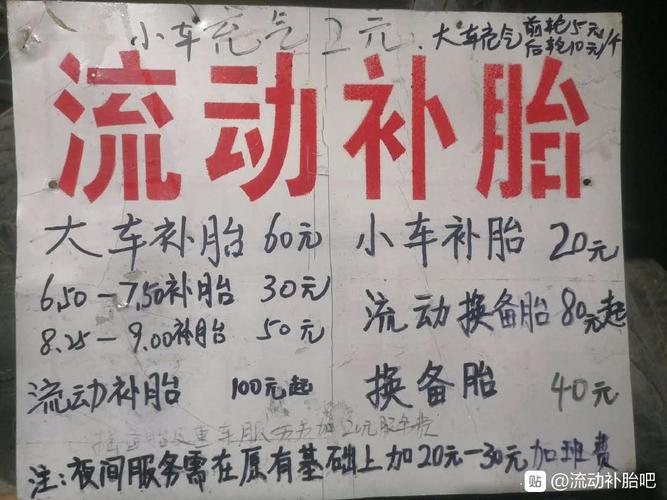 小车充气2元.大车充气前轮5元/个
后轮10元/个
流动补胎
大车补胎 60元 小车补胎 20元
6.50-7.50补胎 30元 流动换备胎80元起
8.25-9.00补胎 50元
流动补胎 100元起 换备胎 40元
加20元
注:夜间服务需在原有基础上加20元-30元加班费
贴 @流动补胎吧